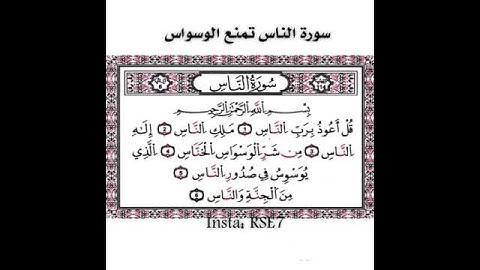 سورة الناس تمنع الوسواس
سُورَةُ النَّاسِ
بِسْمِ اللَّهِ الرَّحْمَٰنِ الرَّحِيمِ
قُلْ أَعُوذُ بِرَبِّ النَّاسِ ١ مَلِكِ النَّاسِ ٢ إِلَٰهِ
النَّاسِ ٣ مِن شَرِّ الْوَسْوَاسِ الْخَنَّاسِ ٤ الَّذِي
يُوَسْوِسُ فِي صُدُورِ النَّاسِ ٥
مِنَ الْجِنَّةِ وَالنَّاسِ ٦
Insta: RSE7